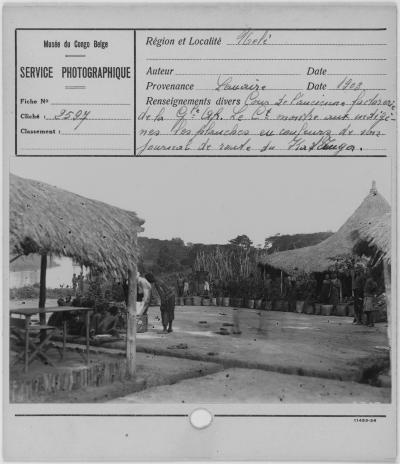 Musée du Congo Belge
SERVICE PHOTOGRAPHIQUE
Fiche No
Cliché : 2597
Classement :
Région et Localité Uele
Auteur Date
Provenance Lemaire Date 1903
Renseignements divers Cour de l'ancienne factorerie
de la Cte. Le Ct montre aux indigè-
nes les planches en couleurs de son
journal de route du Katanga.
11453-36